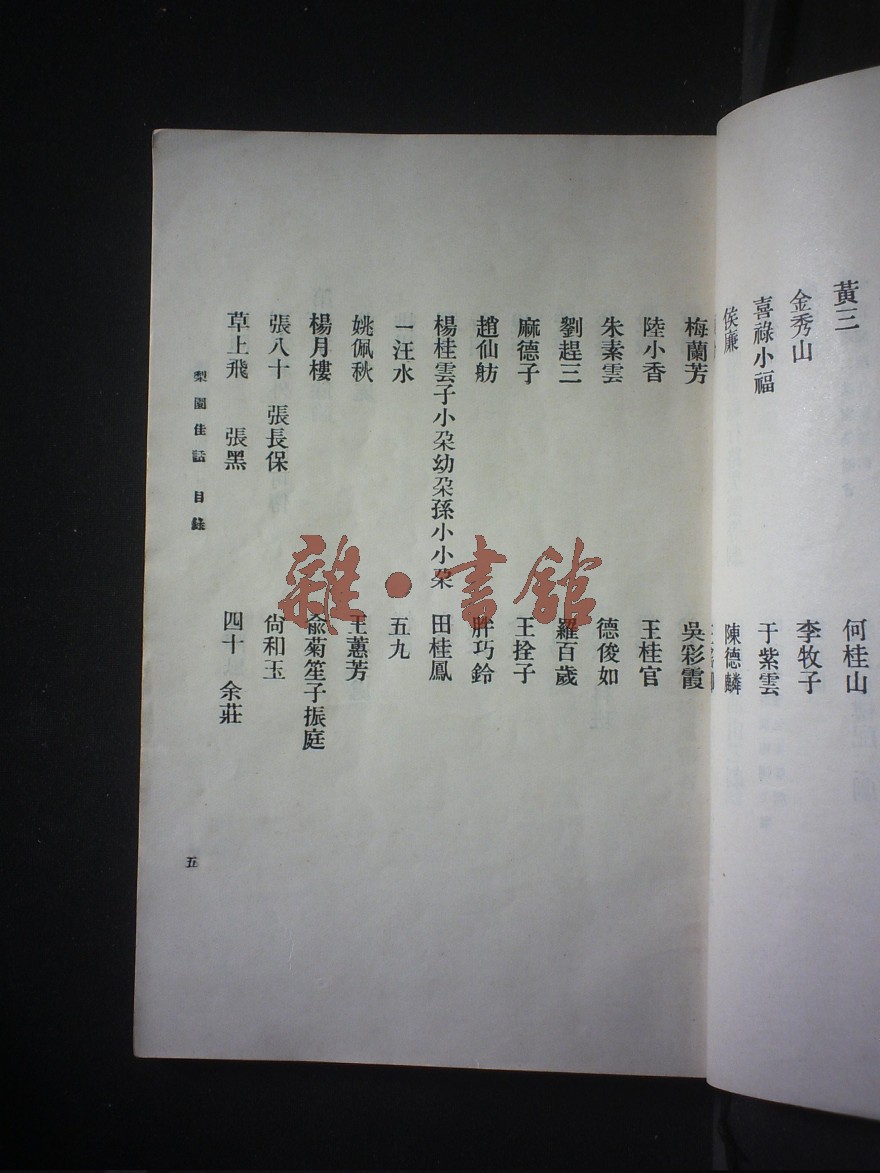 黃三
何桂山
金秀山
李牧子
喜祿小福
于紫雲
侯廉
陳德麟
梅蘭芳
吳彩霞
陸小香
王桂官
朱素雲
德俊如
劉趕三
羅百歲
麻德子
王拴子
趙仙舫
胖巧鈴
楊桂雲子小朶幼朶孫小小朶
田桂鳳
一汪水
五九
姚佩秋
王蕙芳
楊月樓
兪菊笙子振庭
張八十 張長保
尙和玉
草上飛 張黑
四十 余莊
梨園佳話 目錄
五
雜·書館